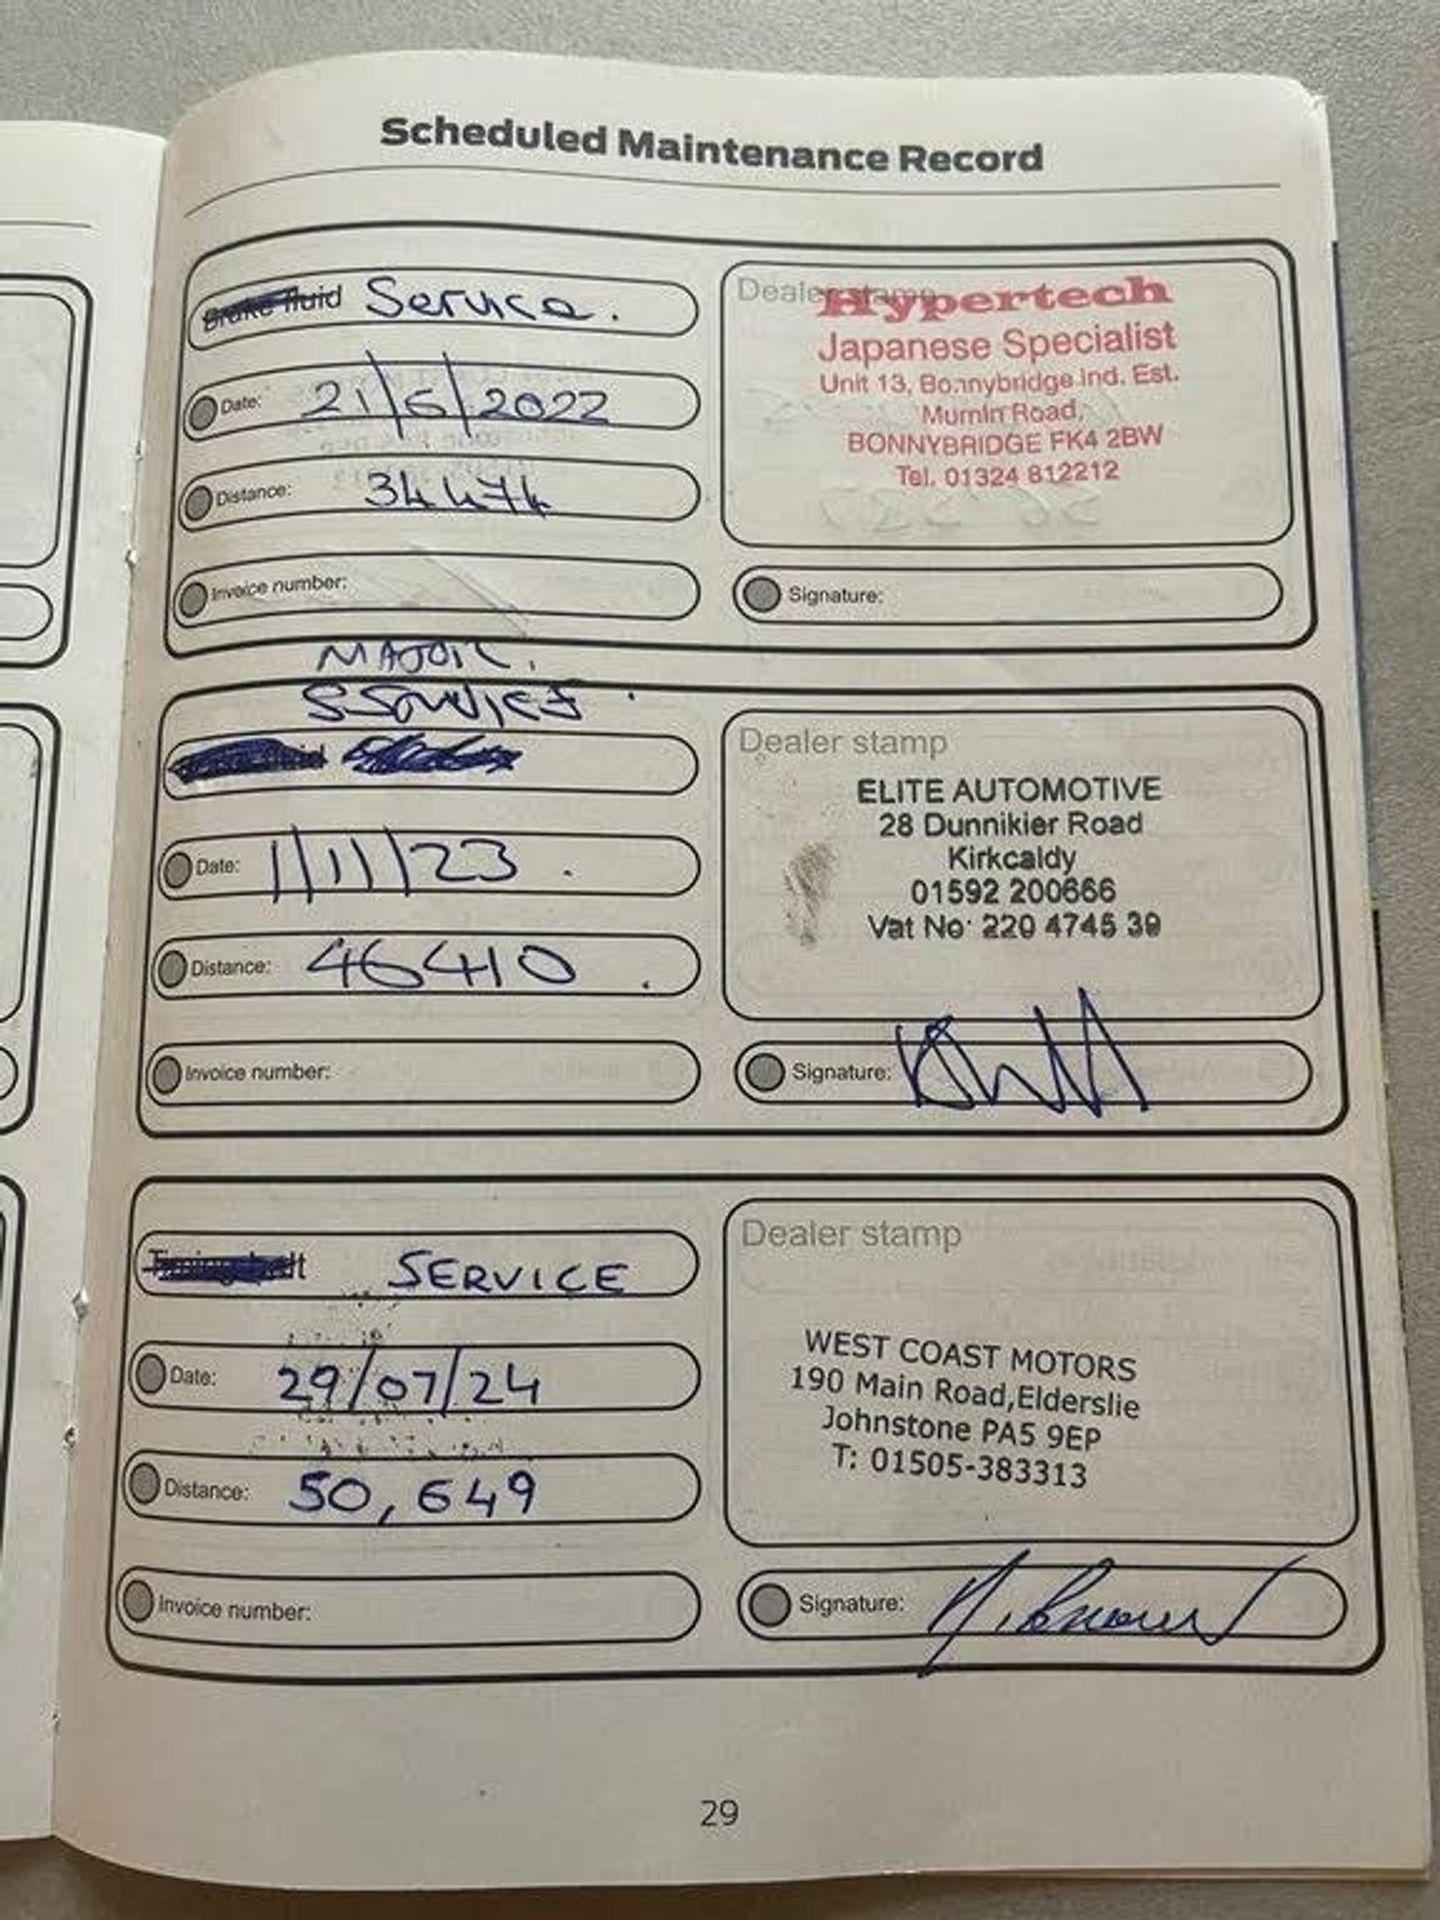 Scheduled Maintenance Record
Brake fluid Service.
Date: 21/6/2022
Distance: 34474
Invoice number:
Dealer stamp
Hypertech
Japanese Specialist
Unit 13, Bonnybridge Ind. Est.
Murnin Road,
BONNYBRIDGE FK4 2BW
Tel. 01324 812212
Signature:
MAJOR.
SERVICE.
fluid
Date: 1/11/23.
Distance: 46410.
Invoice number:
Dealer stamp
ELITE AUTOMOTIVE
28 Dunnikier Road
Kirkcaldy
01592 200666
Vat No: 220 4745 39
Signature:
Timing belt SERVICE
Date: 29/07/24
Distance: 50,649
Invoice number:
Dealer stamp
WEST COAST MOTORS
190 Main Road,Elderslie
Johnstone PA5 9EP
T: 01505-383313
Signature:
29